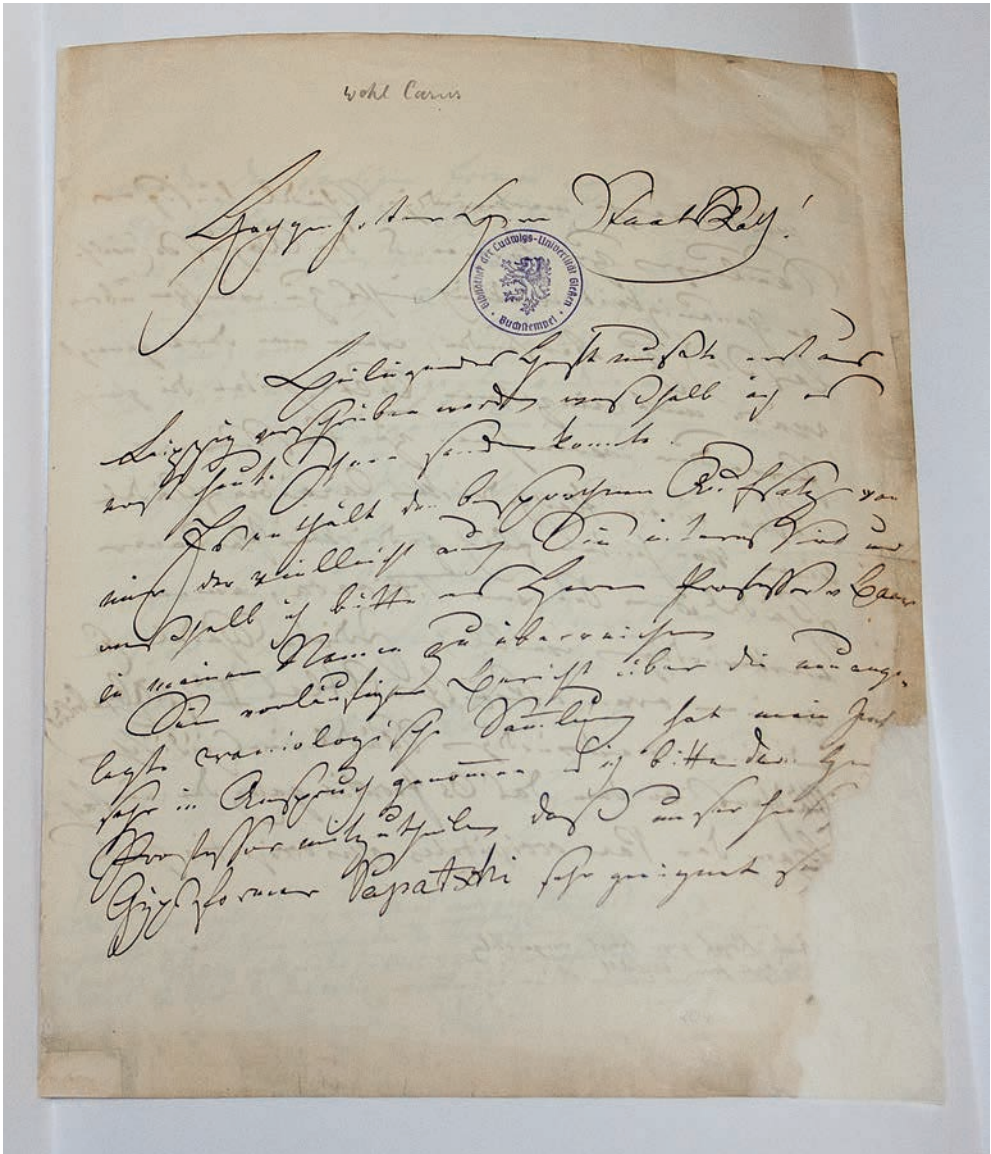 wohl Carus
Hochgeehrter Herr Staats Rath!
Bibliothek der Ludwigs-Universität Gießen
Buchstempel
Beiliegendes Heft mußte erst aus
Leipzig verschrieben werden weßhalb ich es
erst heute Ihnen senden konnte.
Es enthält den besprochnen Aufsatz von
mir, der vielleicht auch Sie interessirt und
weßhalb ich bitte es Herrn Professor v Baer
in meinem Namen zu überreichen
Der vorläufige Bericht über die neuange-
legte craniologische Sammlung hat mein
sehr in Anspruch genommen. Ich bitte dem
Professor mitzutheilen daß unser
Gypsformer Papatschi sehr geeignet